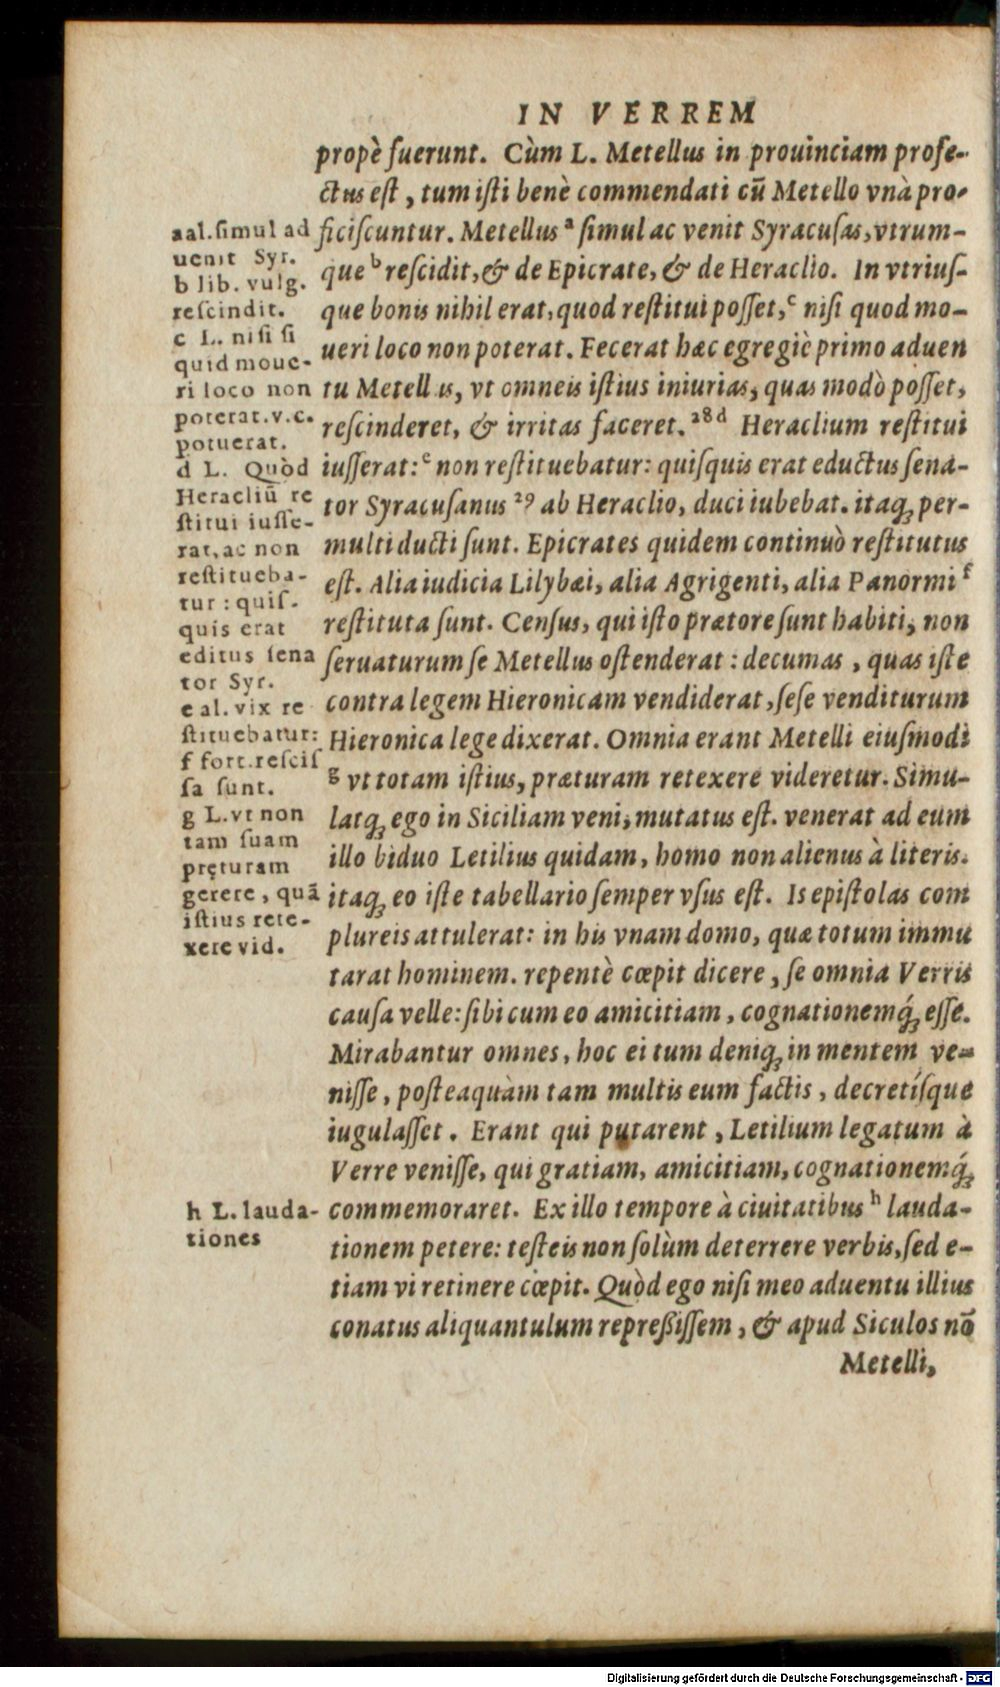 IN VERREM
propè fuerunt. Cùm L. Metellus in prouinciam profe-
ctus est, tum isti benè commendati cū Metello vnà pro-
ficiscuntur. Metellus ᵃ simul ac venit Syracusas, vtrum-
que ᵇ rescidit, & de Epicrate, & de Heraclio. In vtrius-
que bonis nihil erat, quod restitui posset, ᶜ nisi quod mo-
ueri loco non poterat. Fecerat hæc egregiè primo aduen
tu Metellus, vt omneis istius iniurias, quas modò posset,
rescinderet, & irritas faceret. ²⁸ᵈ Heraclium restitui
iusserat: ᵉ non restituebatur: quisquis erat eductus sena-
tor Syracusanus ²⁹ ab Heraclio, duci iubebat. itaq; per-
multi ducti sunt. Epicrates quidem continuò restitutus
est. Alia iudicia Lilybæi, alia Agrigenti, alia Panormi ᶠ
restituta sunt. Census, qui isto prætore sunt habiti, non
seruaturum se Metellus ostenderat: decumas, quas iste
contra legem Hieronicam vendiderat, sese venditurum
Hieronica lege dixerat. Omnia erant Metelli eiusmodi
ᵍ vt totam istius, præturam retexere videretur. Simu-
latq; ego in Siciliam veni, mutatus est. venerat ad eum
illo biduo Letilius quidam, homo non alienus à literis.
itaq; eo iste tabellario semper vsus est. Is epistolas com
plureis attulerat: in his vnam domo, quæ totum immu
tarat hominem. repentè cœpit dicere, se omnia Verris
causa velle: sibi cum eo amicitiam, cognationemq́; esse.
Mirabantur omnes, hoc ei tum deniq; in mentem ve-
nisse, posteaquàm tam multis eum factis, decretísque
iugulasset. Erant qui putarent, Letilium legatum à
Verre venisse, qui gratiam, amicitiam, cognationemq́;
commemoraret. Ex illo tempore à ciuitatibus ʰ lauda-
tionem petere: testeis non solùm deterrere verbis, sed e-
tiam vi retinere cœpit. Quòd ego nisi meo aduentu illius
conatus aliquantulum repressissem, & apud Siculos nō
Metelli,
a al. simul ad
uenit Syr.
b lib. vulg.
rescindit.
c L. nisi si
quid moue-
ri loco non
poterat. v.c.
potuerat.
d L. Quòd
Heracliū re
stitui iusse-
rat, ac non
restitueba-
tur: quis-
quis erat
editus sena
tor Syr.
e al. vix re
stituebatur:
f fort. rescis
sa sunt.
g L. vt non
tam suam
pręturam
gerere, quā
istius rete-
xere vid.
h L. lauda-
tiones
Digitalisierung gefördert durch die Deutsche Forschungsgemeinschaft - DFG